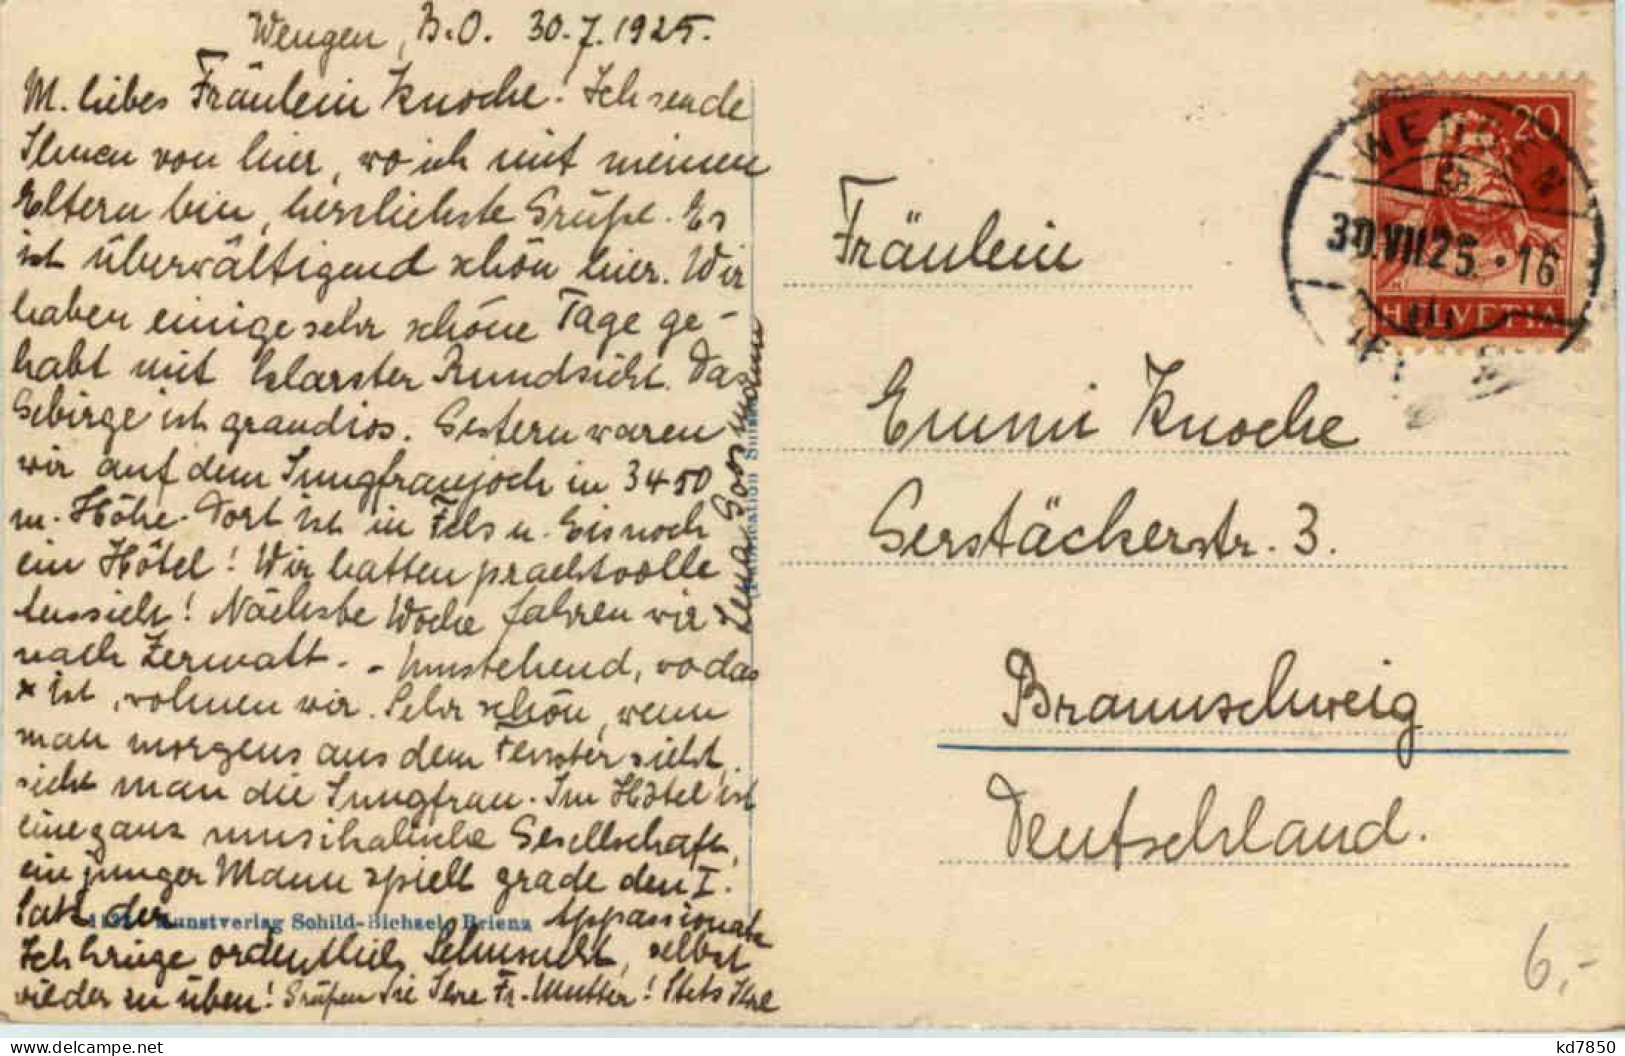 Wengen, B.O. 30.7.1925.
M. liebes Fräulein Knoche! Ich sende
Ihnen von hier, wo ich mit meinen
Eltern bin, herzlichste Grüße. Es
ist überwältigend schön hier. Wir
haben einige sehr schöne Tage ge-
habt mit klarster Rundsicht. Das
Gebirge ist grandios. Gestern waren
wir auf dem Jungfraujoch in 3450
m. Höhe. Dort ist in Fels u. Eis noch
ein Hôtel! Wir hatten prachtvolle
Aussicht! Nächste Woche fahren wir
nach Zermatt. - Umstehend, wo das
x ist, wohnen wir. Sehr schön, wenn
man morgens aus dem Fenster sieht,
sieht man die Jungfrau. Im Hôtel ist
eine ganz musikalische Gesellschaft,
ein junger Mann spielt grade den I.
Satz der Appassionata
Ich kriege ordentlich Sehnsucht, selbst
wieder zu üben! Grüßen Sie Ihre Fr. Mutter! Stets Ihre
Lena
Kunstverlag Schild-Bichsel, Brienz
WENGEN
30.VII.25.·16
20
HELVETIA
Fräulein
Emmi Knoche
Gerstäckerstr. 3.
Braunschweig
Deutschland.
6,-
kd7850